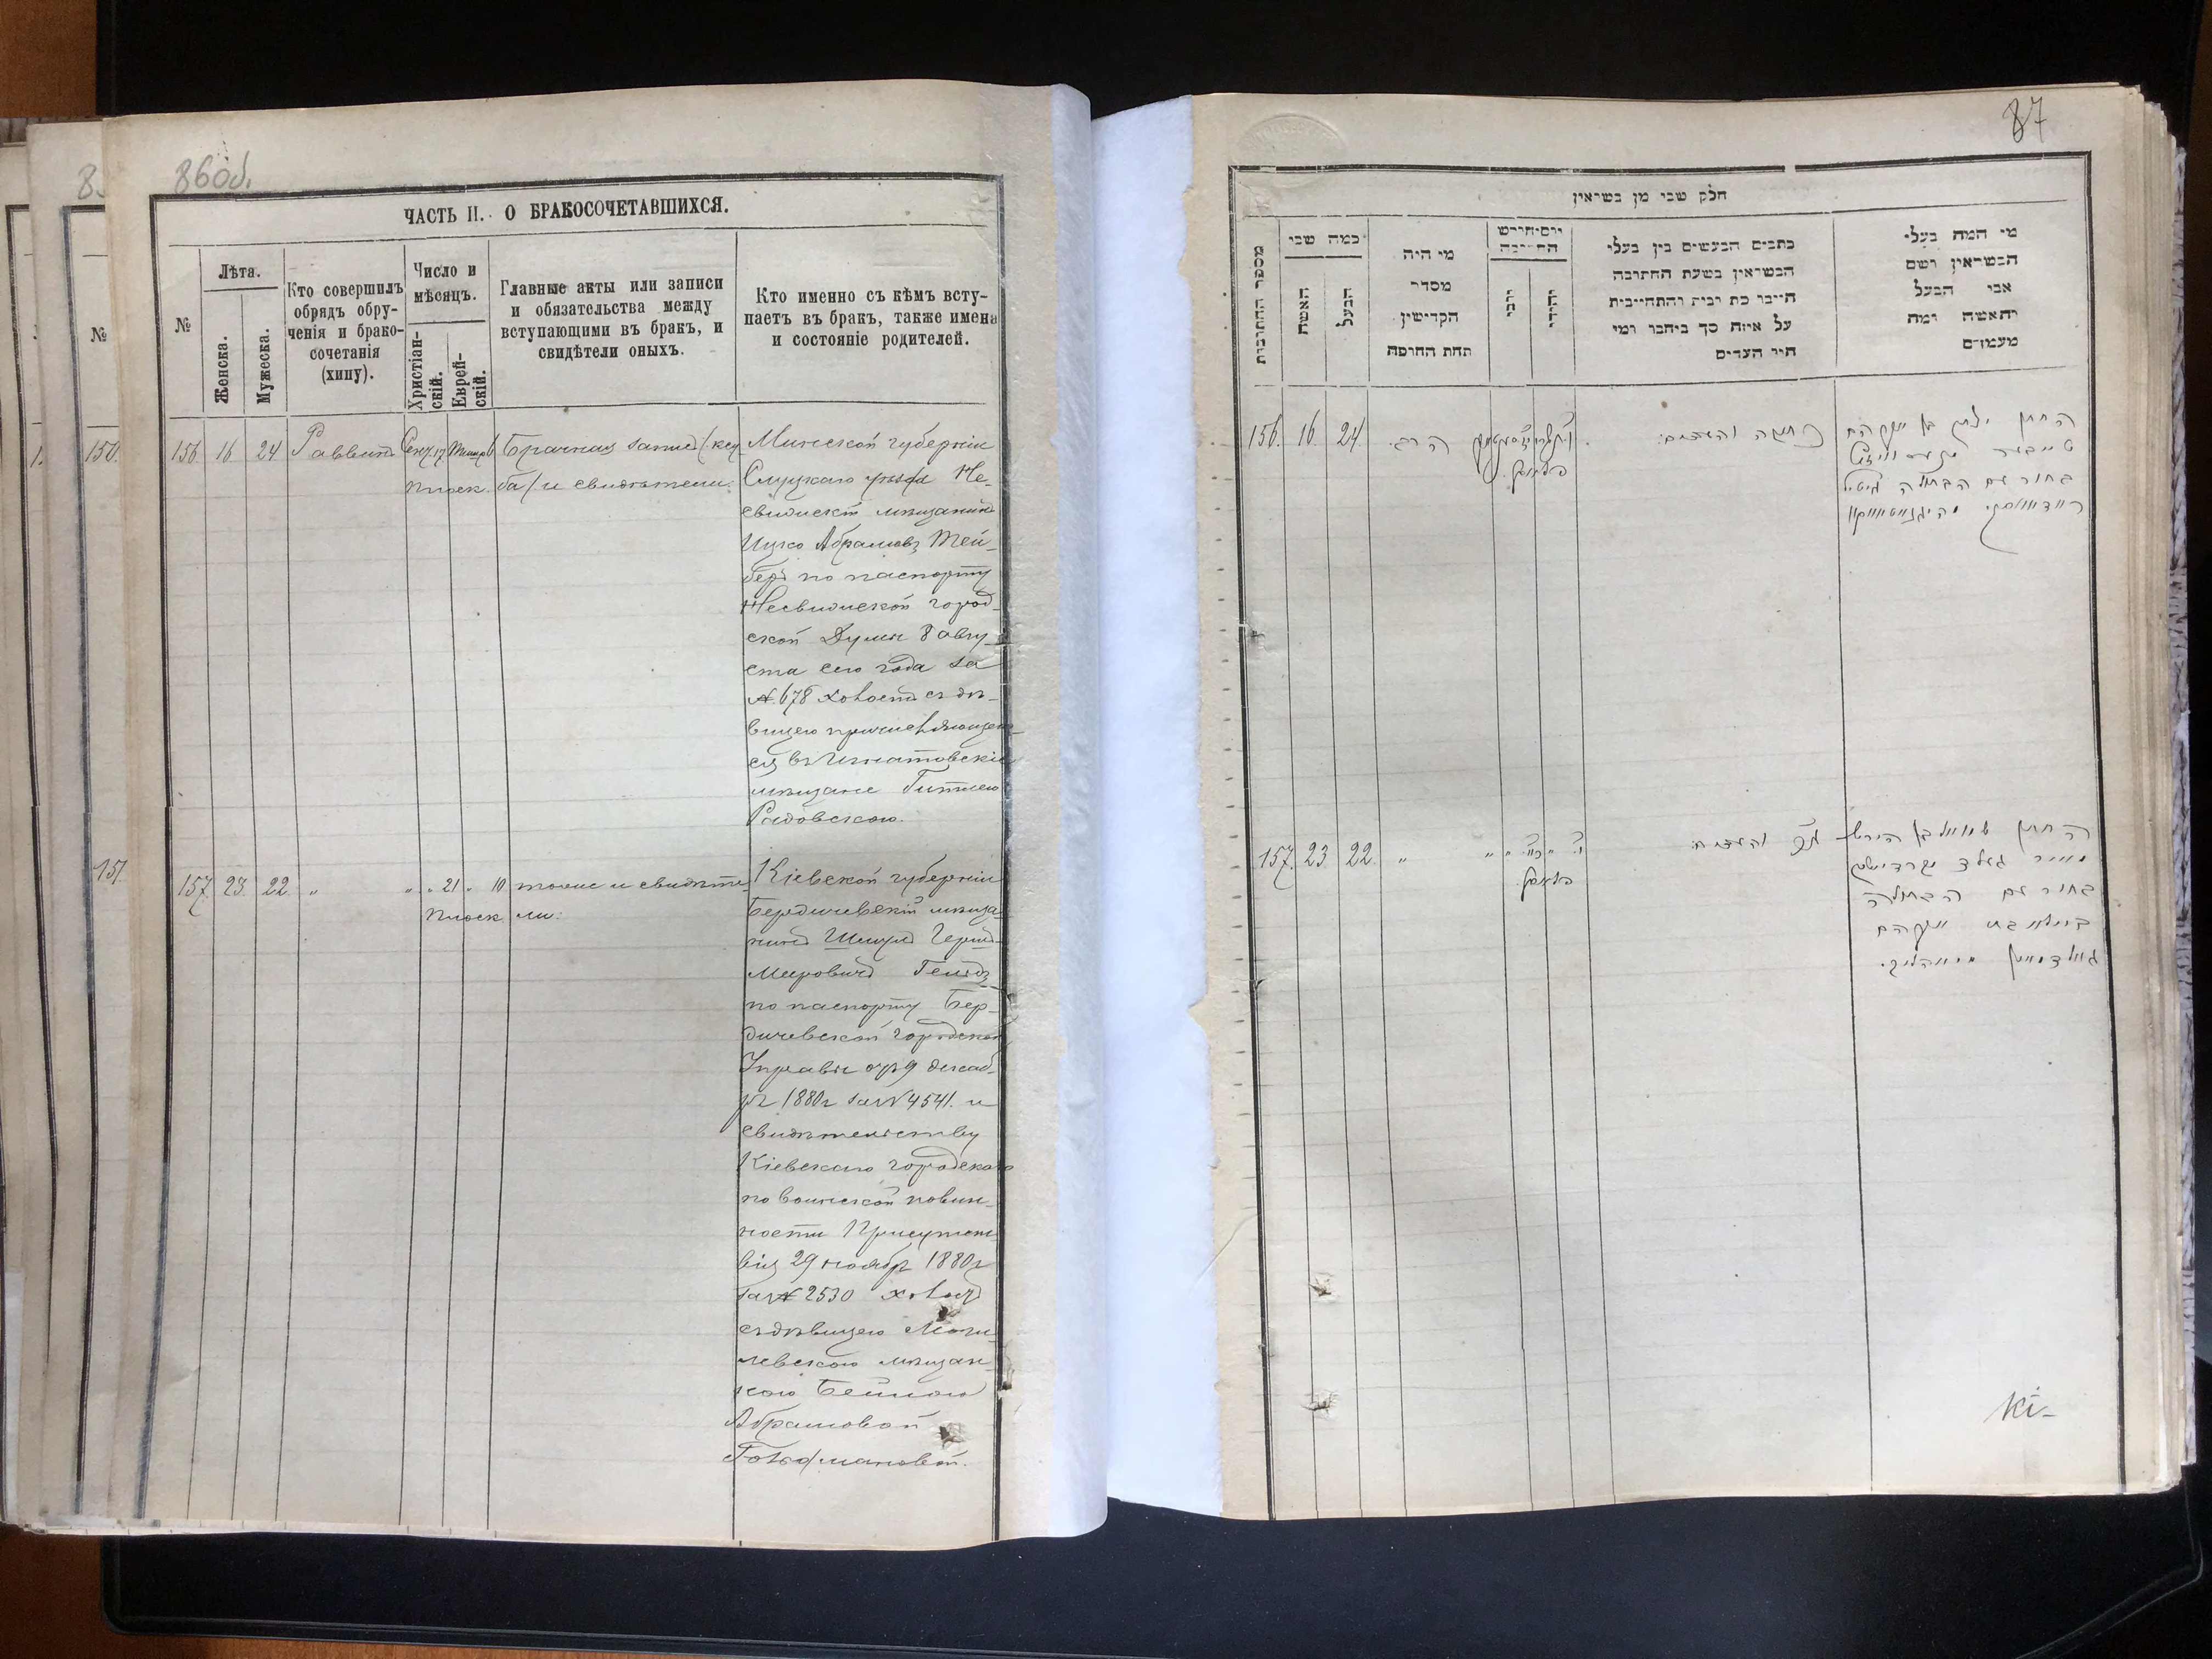 86об.
ЧАСТЬ II. О БРАКОСОЧЕТАВШИХСЯ.
№
Лѣта.
Женска.
Мужеска.
Кто совершилъ
обрядъ обру-
ченія и брако-
сочетанія
(хипу).
Число и
мѣсяцъ.
Христіан-
скій.
Еврей-
скій.
Главные акты или записи
и обязательства между
вступающими въ бракъ, и
свидѣтели оныхъ.
Кто именно съ кѣмъ всту-
паетъ въ бракъ, также имена
и состояніе родителей.
№
150.
151.
156. 16 24 Раввинъ Сент. 17 6 Брачная запись (кту
Плоск. ба) и свидѣтели.
Минской губерніи
Слуцкаго уѣзда Не-
свижскій мѣщанинъ
Ицко Абрамовъ Тей-
беръ по паспорту
Несвижской город-
ской Думы 8 авгу-
ста сего года за
№ 678 холостъ съ дѣ-
вицею причисляющею-
ся въ Игнатовскіе
мѣщане Гитлею
Радовскою.
157. 23. 22. " " " 21 " 10 тоже и свидѣте-
Плоск ли:
Кіевской губерніи
Бердичевскій мѣща-
нинъ Шмуль Герш-
Мееровичъ Гельдъ
по паспорту Бер-
дичевской городской
Управы отъ 9 декаб-
ря 1880 г за № 4541. и
свидѣтельству
Кіевскаго городскаго
по воинской повин-
ности Присутст-
вія 29 ноября 1880 г
за № 2530 холостъ
съ дѣвицею Моги-
левскою мѣщан-
кою Бейлою
Абрамовой
Гольдмановой.
87
חלק שני מן נשואין
מספר החתונות
כמה שני
האשה
הבעל
מי היה
מסדר
הקדישין
תחת החופה
יום וחודש
החתונה
נוצרי
יהודי
כתבים הנעשים בין בעלי
הנשואין בשעת החתונה
היינו כת ובית והתחייבות
על איזה סך ביחבו ומי
היו העדים
מי המה בעלי
הנשואין ושם
אבי הבעל
והאשה ומה
מעמדם
156. 16. 24. הרב
כתובה והעדים:
החתן יצחק בן אברהם
בחור עם הבתולה גיטל
157. 23 22. " " "
והעדים:
החתן שמואל בן הירש
מאיר געלד
בחור עם הבתולה
ביילא בת אברהם
גאלדמאן
Кі-